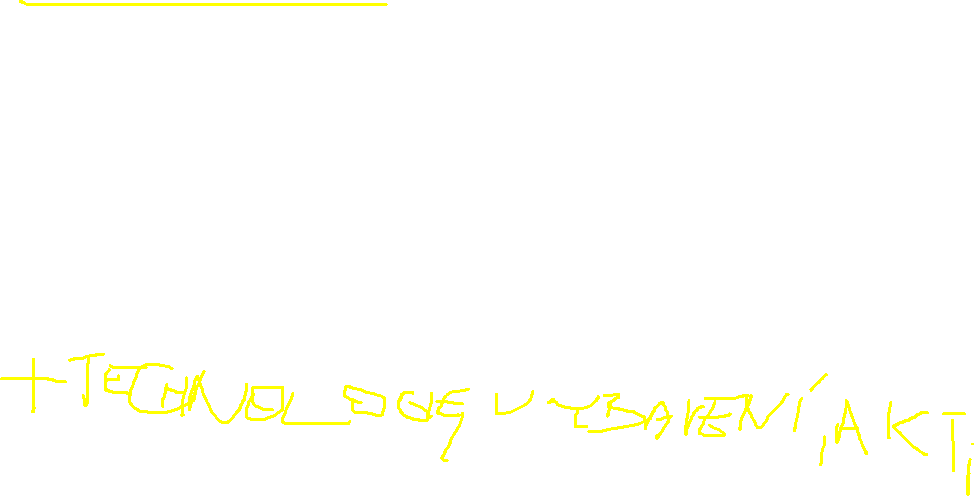 + TECHNOLOGIE, VYBAVENÍ, AKT,